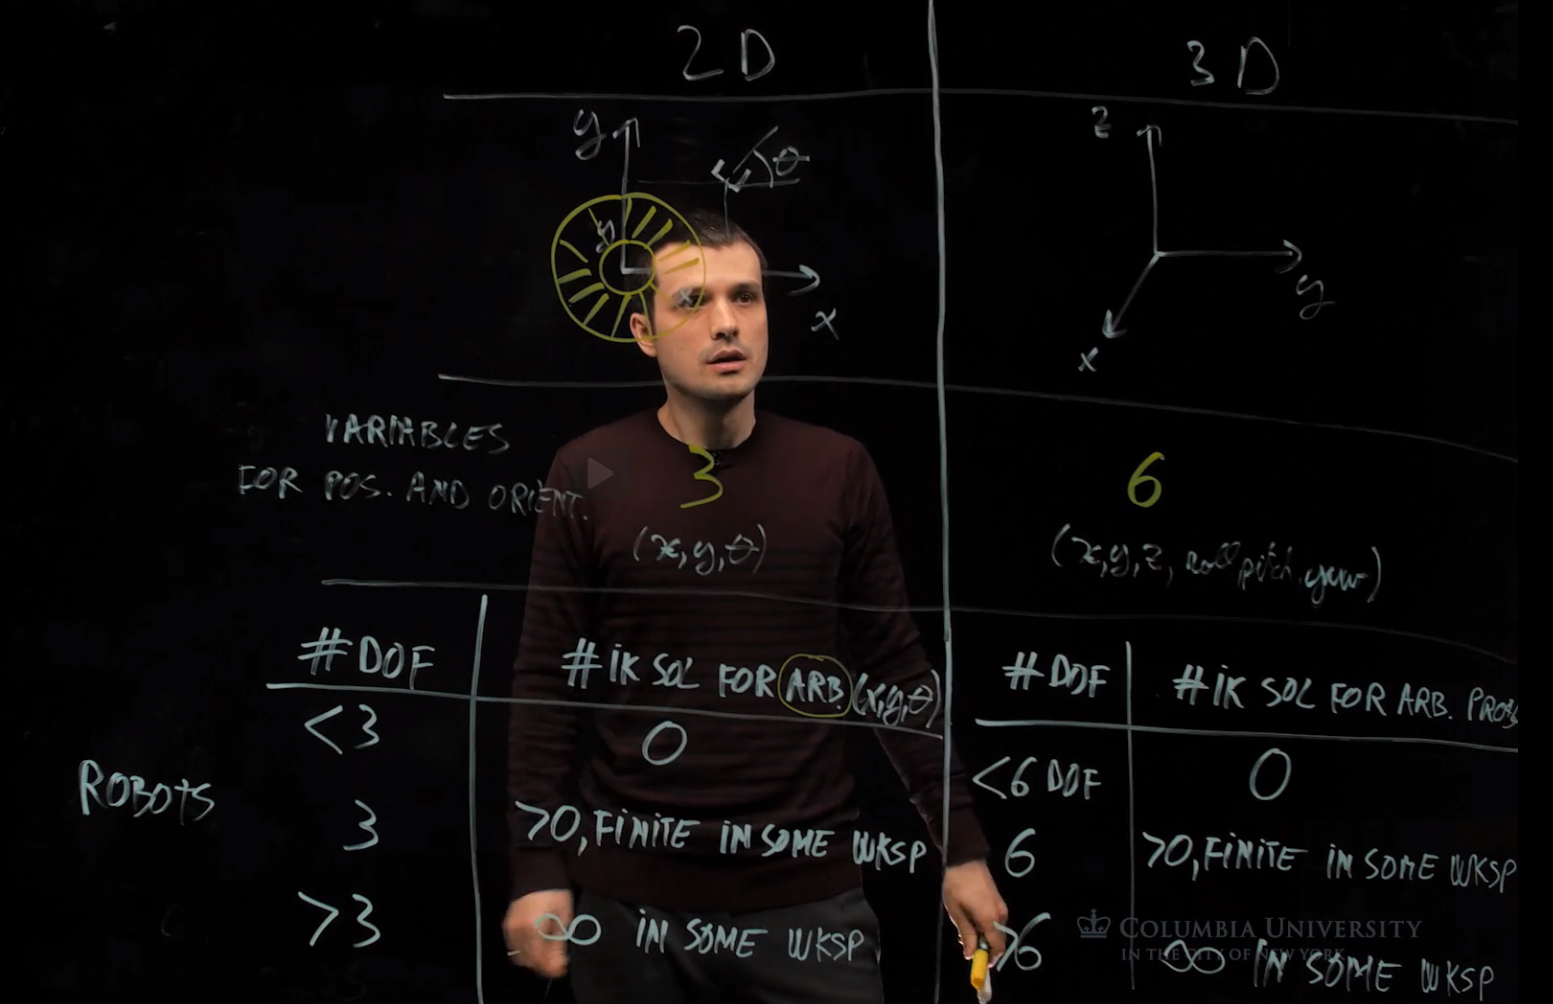 2D
3D
y
θ
y
x
x
z
y
x
VARIABLES
FOR POS. AND ORIENT.
3
(x,y,θ)
6
(x,y,z, roll, pitch, yaw)
ROBOTS
#DOF
#IK SOL FOR ARB. (x,y,θ)
<3
0
3
>0, FINITE IN SOME WKSP
>3
∞ IN SOME WKSP
#DOF
#IK SOL FOR ARB.
<6 DOF
0
6
>0, FINITE IN SOME WKSP
>6
∞ IN SOME WKSP
COLUMBIA UNIVERSITY
IN THE CITY OF NEW YORK